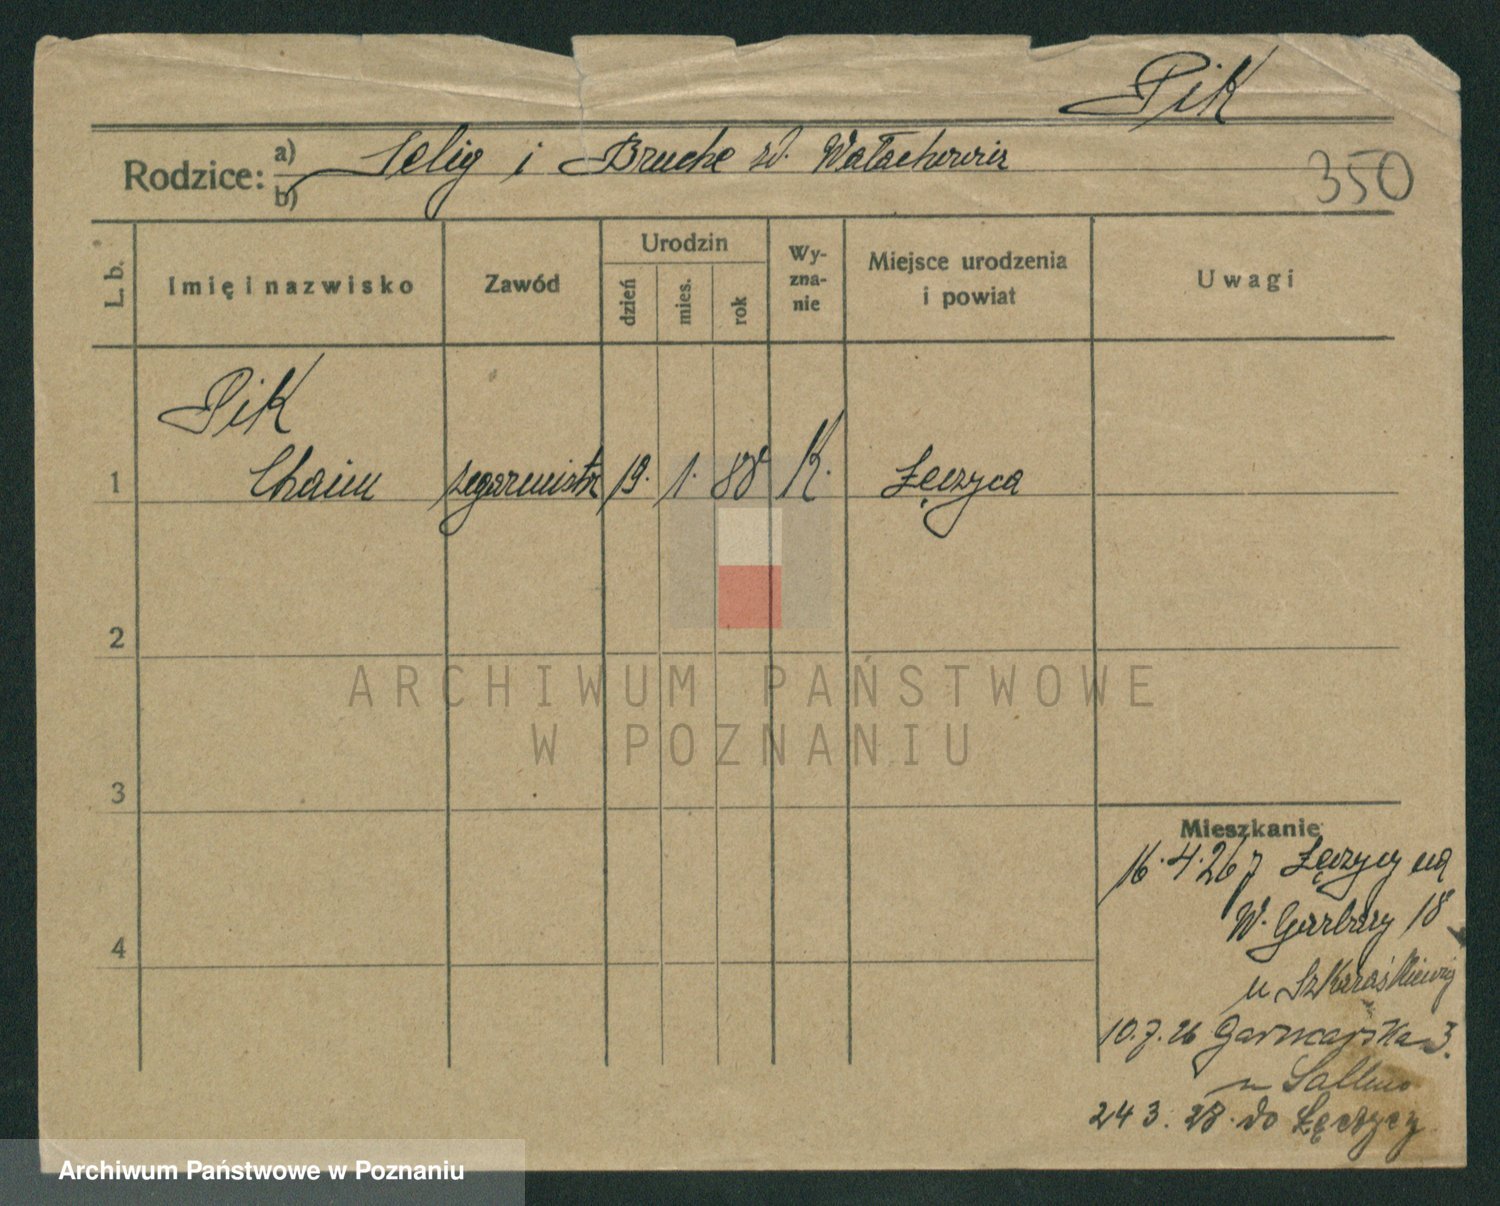 Pik
Rodzice: a) b) Selig i Bruche zd. Wałachowicz
350
L. b.
Imię i nazwisko
Zawód
Urodzin
dzień
mies.
rok
Wy-
zna-
nie
Miejsce urodzenia
i powiat
Uwagi
Pik
1 Chaim zegarmistrz 19. 1. 88 K. Łęczyca
2
3
4
Mieszkanie
16.4.26 z Łęczycy na
W. Garbary 18
u Szkaraśkiewicz
10.7.26 Garncarska 3.
u
24 3. 28. do Łęczycy
ARCHIWUM PAŃSTWOWE
W POZNANIU
Archiwum Państwowe w Poznaniu